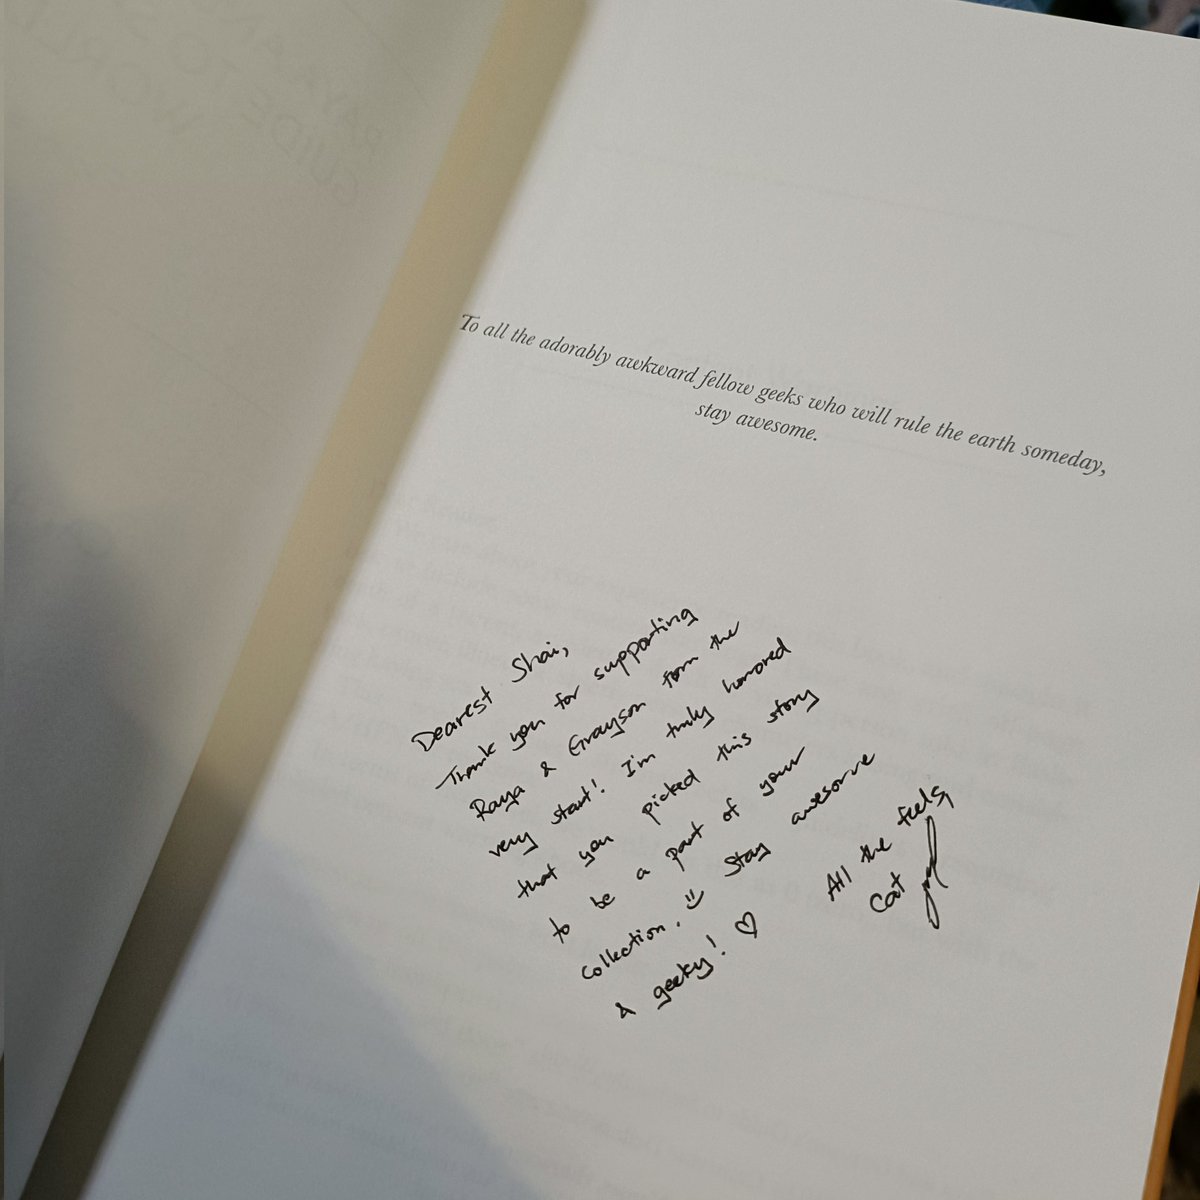 To all the adorably awkward fellow geeks who will rule the earth someday,
stay awesome.
Dearest Shai,
Thank you for supporting
Raya & Grayson form the
very start! I'm truly honored
that you picked this story
to be a part of your
collection. Stay awesome
& geeky! ♡
All the feels,
Cat